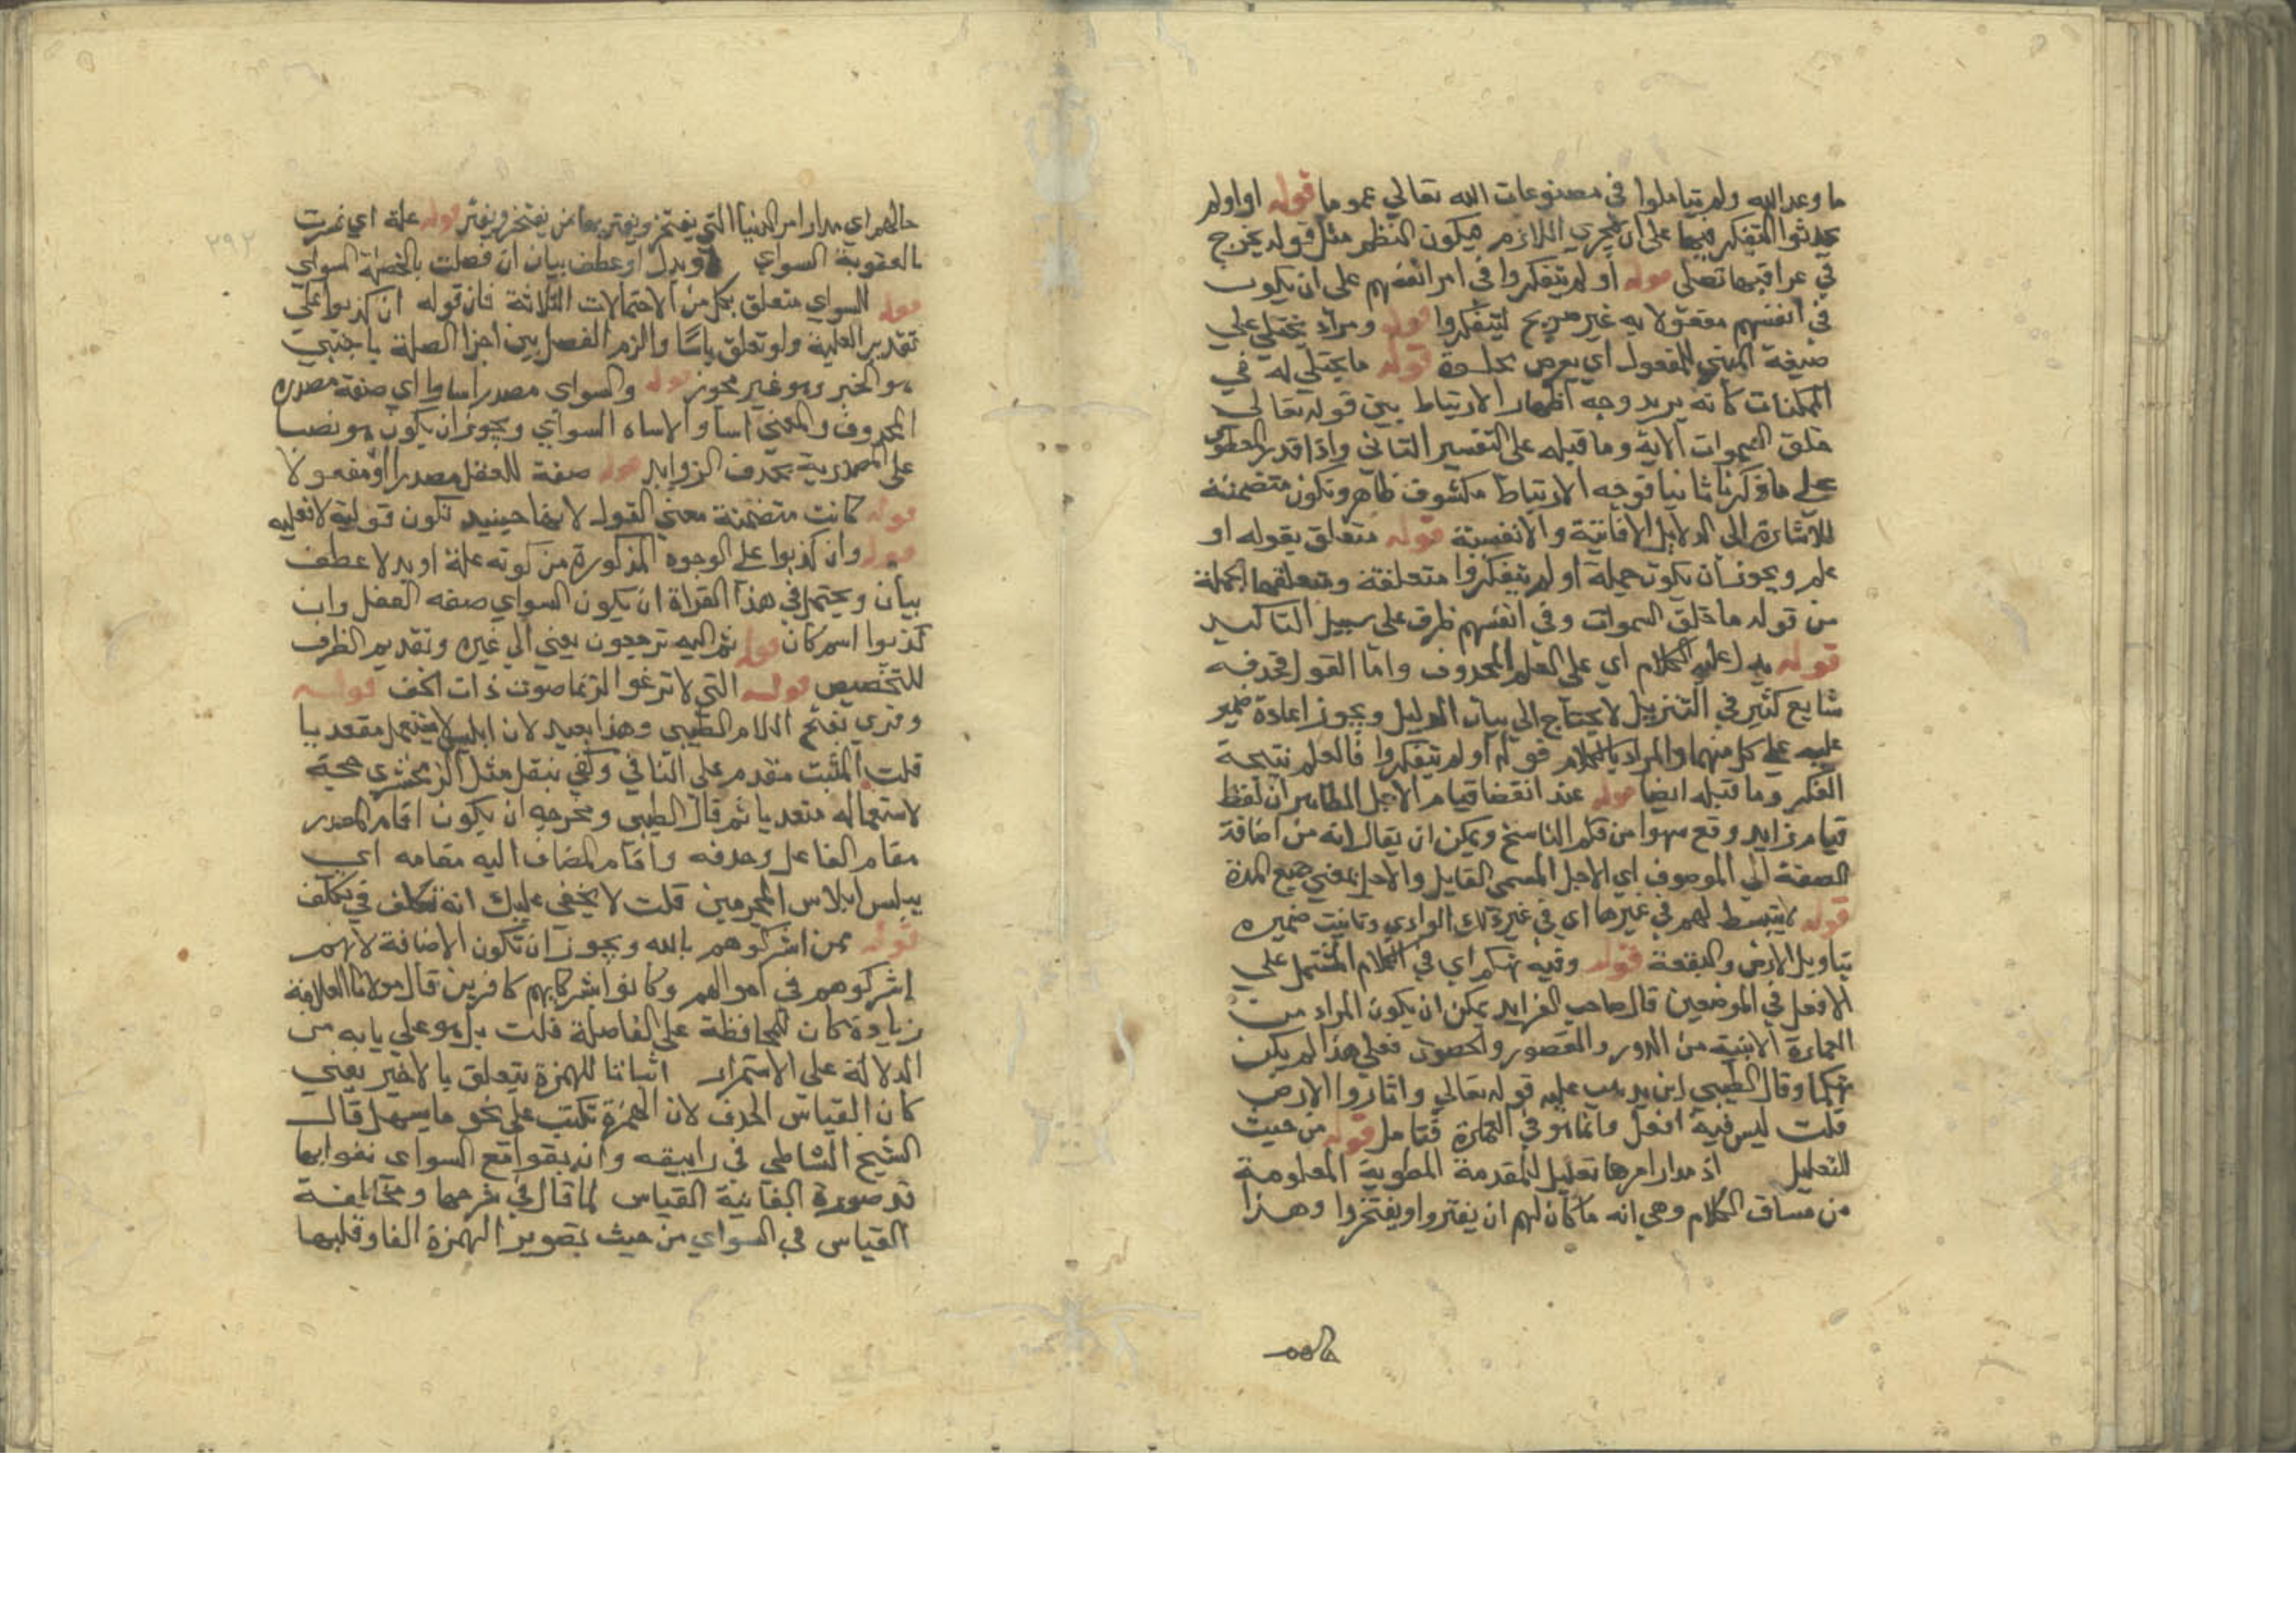 ما وعد الله ولم يتاملوا في مصنوعات الله تعالي عموما قوله او اولم
يحدثوا التفكر فيها علي ان يجري اللازم فيكون النظم مثل قوله يخرج
في عراقيبها نصلي قوله او لم يتفكروا في امر انفسهم علي ان يكون
في انفسهم مفعولا به غير صريح ليتفكروا قوله ومرآة يجتلي علي
صيغة المبني للمفعول اي يعرض بجلوة قوله ما يجتلي له في
الممكنات كانه يريد وجه اظهار الارتباط بين قوله تعالي
خلق السموات الاية وما قبله علي التفسير الثاني واذا قدر المعطوف
علي ما ذكرنا ثانيا فوجه الارتباط مكشوف ظاهر وتكون متضمنة
للاشارة الي الدلايل الافاقية والانفسية قوله متعلق بقوله او
علم ويجوز ان يكون جملة اولم يتفكروا متعلقة ومتعلقها الجملة
من قوله ما خلق السموات وفي انفسهم ظرف علي سبيل التاكيد
قوله يدل عليه الكلام اي علي العلم المحذوف واما القول فحذفه
شايع كثير في التنزيل لا يحتاج الي بيان الدليل ويجوز اعادة ضمير
عليه علي كل منهما والمراد بالكلام قوله اولم يتفكروا فالعلم نتيجة
الفكر وما قبله ايضا قوله عند انقضا قيام الاجل الظاهر ان لفظ
قيام زايد وقع سهوا من قلم الناسخ ويمكن ان يقال انه من اضافة
الصفة الي الموصوف اي الاجل المسمي القايل والاجل بمعني جميع المدة
قوله لا يتبسط لهم في غيرها اي في غير ذلك الوادي وتانيث ضميره
بتاويل الارض والبقعة قوله وفيه تهكم اي في الكلام المشتمل علي
الافعل في الموضعين قال صاحب الفرايد يمكن ان يكون المراد من
العمارة الابنية من الدور والقصور والحصون فعلي هذا لم يكن
تهكما وقال الطيبي اين يذهب عليه قوله تعالي واثاروا الارض
قلت ليس فيه افعل وانما هو في العمارة فتامل قوله من حيث
التعليل اذ مدار امرها تعليل للمقدمة المطوية المعلومة
من مساق الكلام وهي انه ما كان لهم ان يغتروا ويفتخروا وهذا
٢٩٢
حالهم اي مدار امر الدنيا التي يفتخر ويغتر بها من يفتخر ويغتر قوله علة اي ثمرت
العقوبة السواي او بدل او عطف بيان ان فصلت بالخصلة السواي
قوله للسواي متعلق بكل من الاحتمالات الثلاثة فان قوله ان كذبوا علي
تقدير العلية ولو تعلق باساوا لزم الفصل بين اجزا الصلة باجنبي
هو الخبر وهو غير مجوز قوله والسواي مصدر اساوا اي صفة مصدره
المحذوف والمعني اساوا الاساه السواي ويجوز ان يكون هو نصبا
علي المصدرية بحذف الزوايد قوله صفة للفعل مصدرا او مفعولا
قوله كانت متضمنة معني القول لانها حينيذ تكون قولية لا فعليه
قوله وان كذبوا علي الوجوه المذكورة من كونه علة او بدلا عطف
بيان ويحتمل في هذا القراة ان يكون السواي صفه الفعل وان
كذبوا اسم كان قوله ثم اليه ترجعون يعني الي غيره وتقديم الظرف
للتخصيص قوله التي لا ترغو الرغا صوت ذات الخف قوله
وقري بفتح اللام الطيبي وهذا بعيد لان ابلس لا يستعمل متعديا
قلت المثبت مقدم علي النافي وكفي بنقل مثل الزمخشري حجة
لاستعماله متعديا ثم قال الطيبي ومخرجه ان يكون اقام المصدر
مقام الفاعل وحذفه واقام المضاف اليه مقامه اي
يبلس ابلاس المجرمين قلت لا يخفي عليك انه تكلف في تكلف
قوله ممن اشركوهم بالله ويجوز ان تكون الاضافة لانهم
اشركوهم في اموالهم وكانوا بشركايهم كافرين قال مولانا العلامة
زيادة كان للمحافظة علي الفاصلة قلت بل هو علي بابه من
الدلالة علي الاستمرار اثباتا للهمزة يتعلق بالاخير يعني
كان القياس الحذف لان الهمزة تكتب علي نحو ما يسهل قال
الشيخ الشاطبي في راييته وان تبوا مع السواي تنوا بها
قد صورت الفا منه القياس لما قال في شرحها ومخالفة
القياس في السواي من حيث تصوير الهمزة الفا وقلبها